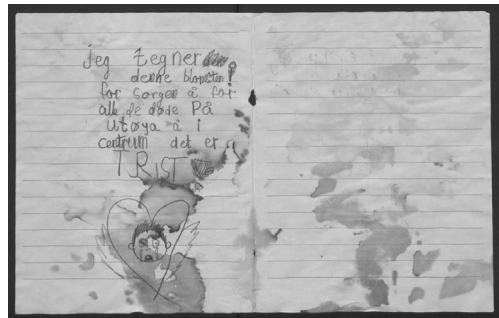 jeg tegner
denne blomsten!
for sorgen å for
alle de døde På
utøya å i
centrum det er
TRIST